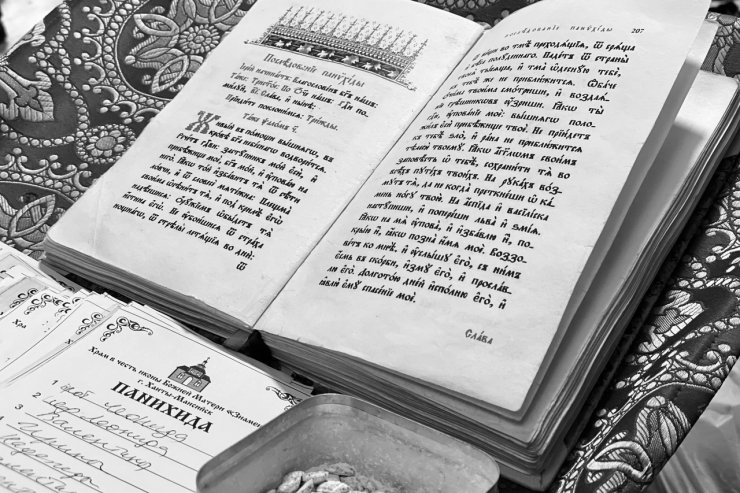 Послѣ́дованїе панїхи́ды
І҆ере́й начина́етъ: Благослове́нъ бг҃ъ на́шъ:
Та́же, Трист҃о́е. По Ѻ҆́ч҃е на́шъ: Гдⷭ҇и по-
ми́лꙋй, в҃і. Сла́ва, и҆ ны́нѣ:
Прїиди́те поклони́мсѧ: Три́жды.
Та́же ѱало́мъ ч҃.
Живы́й въ по́мощи вы́шнѧгѡ, въ
кро́вѣ бг҃а нбⷭ҇нагѡ водвори́тсѧ.
Рече́тъ гдⷭ҇ви: застꙋ́пникъ мо́й є҆сѝ, и҆
прибѣ́жище моѐ, бг҃ъ мо́й, и҆ ᲂу҆пова́ю на
него̀. Ꙗ҆́кѡ то́й и҆зба́витъ тѧ̀ ѿ сѣ́ти
ло́вчи, и҆ ѿ словесѐ мѧте́жна. Плещма̀
свои́ма ѡ҆сѣни́тъ тѧ̀, и҆ под̾ крилѣ̑ є҆гѡ̀
надѣ́ешисѧ. Ѻ҆рꙋ́жїемъ ѡ҆бы́детъ тѧ̀
и҆́стина є҆гѡ̀. Не ᲂу҆бои́шисѧ ѿ стра́ха
нощна́гѡ, ѿ стрѣлы̀ летѧ́щїѧ во днѝ:
ѿ
Послѣ́дованїе панїхи́ды 207
ѿ ве́щи во тмѣ̀ преходѧ́щїѧ, ѿ срѧ́ща
и҆ бѣ́са полꙋ́деннагѡ. Паде́тъ ѿ страны̀
твоеѧ̀ ты́сѧща, и҆ тма̀ ѡ҆деснꙋ́ю тебє̀,
къ тебѣ́ же не прибли́житсѧ. Ѻ҆ба́че
ѻ҆чи́ма твои́ма смо́триши, и҆ воздаѧ́-
нїе грѣ́шникѡвъ ᲂу҆́зриши. Ꙗ҆́кѡ ты̀
гдⷭ҇и, ᲂу҆пова́нїе моѐ: вы́шнѧго поло-
жи́лъ є҆сѝ прибѣ́жище твоѐ. Не прїи́детъ
къ тебѣ̀ ѕло̀, и҆ ра́на не прибли́житсѧ
тѣлесѝ твоемꙋ̀. Ꙗ҆́кѡ а҆́гг҃лѡмъ свои̑мъ
заповѣ́сть ѡ҆ тебѣ̀, сохрани́ти тѧ̀ во
всѣ́хъ пꙋте́хъ твои́хъ. На рꙋка́хъ во́з-
мꙋтъ тѧ̀, да не когда̀ преткне́ши ѡ҆ ка́-
мень но́гꙋ твою̀. На а҆́спїда и҆ васїлі́ска
настꙋ́пиши, и҆ попере́ши льва̀ и҆ ѕмі́ѧ.
Ꙗ҆́кѡ на мѧ̀ ᲂу҆пова̀, и҆ и҆зба́влю и҆̀, по-
кры́ю и҆̀, ꙗ҆́кѡ позна̀ и҆́мѧ моѐ. Воззо-
ве́тъ ко мнѣ̀, и҆ ᲂу҆слы́шꙋ є҆го̀, съ ни́мъ
є҆́смь въ ско́рби, и҆змꙋ̀ є҆го̀, и҆ просла́в-
лю є҆го̀. Долгото́ю дні́й и҆спо́лню є҆го̀, и҆
ꙗ҆влю̀ є҆мꙋ̀ спⷭ҇нїе моѐ.
Сла́ва
Хра
Храм в честь иконы Божией Матери «Знамен
г. Ханты-Мансийск
ПАНИХИДА
1
2
3
4